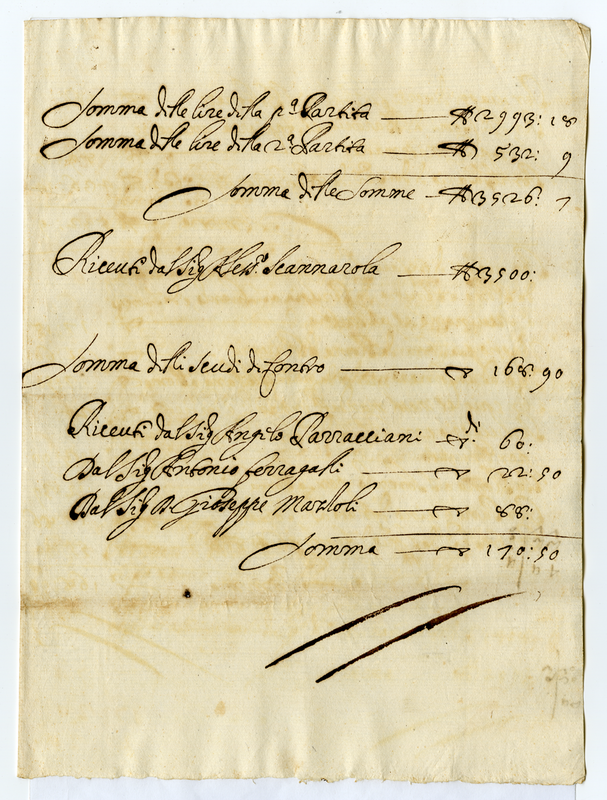 Somma delle lire della p.ª Partita — ₶ 2993: 18
Somma delle lire della 2ª Partita — ₶ 532: 9
Somma delle Somme — ₶ 3526: 7
Riceuti dal Sig. Aless.º Scannarola — ₶ 3500:
Somma delli scudi di contro — 168: 90
Riceuti dal Sig. Angelo Parracciani — di 60:
Dal Sig. Antonio Ferragalli — 22: 50
Dal Sig. D. Gioseppe — 88:
Somma — 170: 50